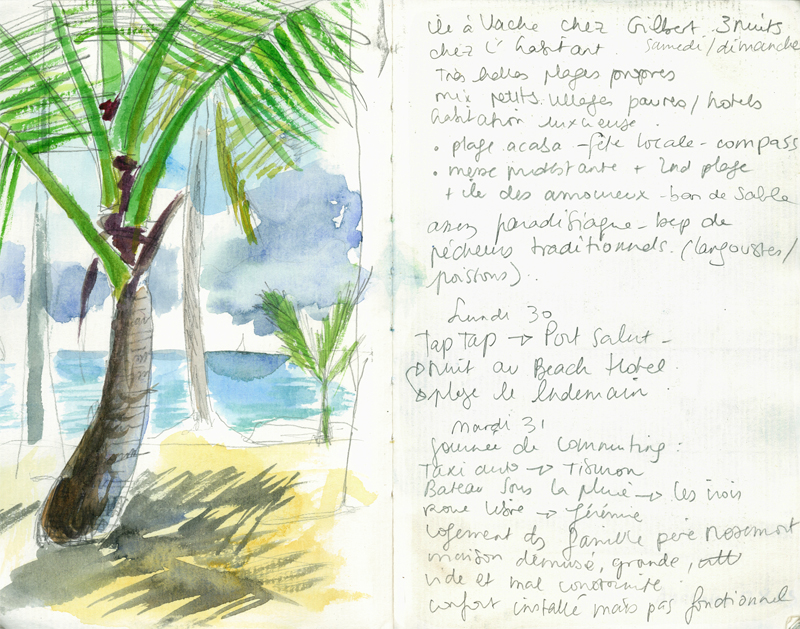 île à Vache chez Gilbert 3 nuits
chez l'habitant. samedi/dimanche
Très belles plages propres
mix petits villages pauvres / hotels
habitation luxueuse.
• plage acasa - fête locale - compass
• messe protestante + 2nd plage
+ île des amoureux - ban de sable
assez paradisiaque - bcp de
pêcheurs traditionnels. (langoustes/
poissons)..
Lundi 30
Tap Tap → Port Salut -
→ nuit au Beach Hotel.
→ plage le lendemain.
mardi 31
journée de commuting :
Taxi auto →
Bateau sous la pluie → les irois
Roue libre → Jérémie
Logement ds famille père
maison grande,
vide et mal construite.
confort installé mais pas fonctionnel